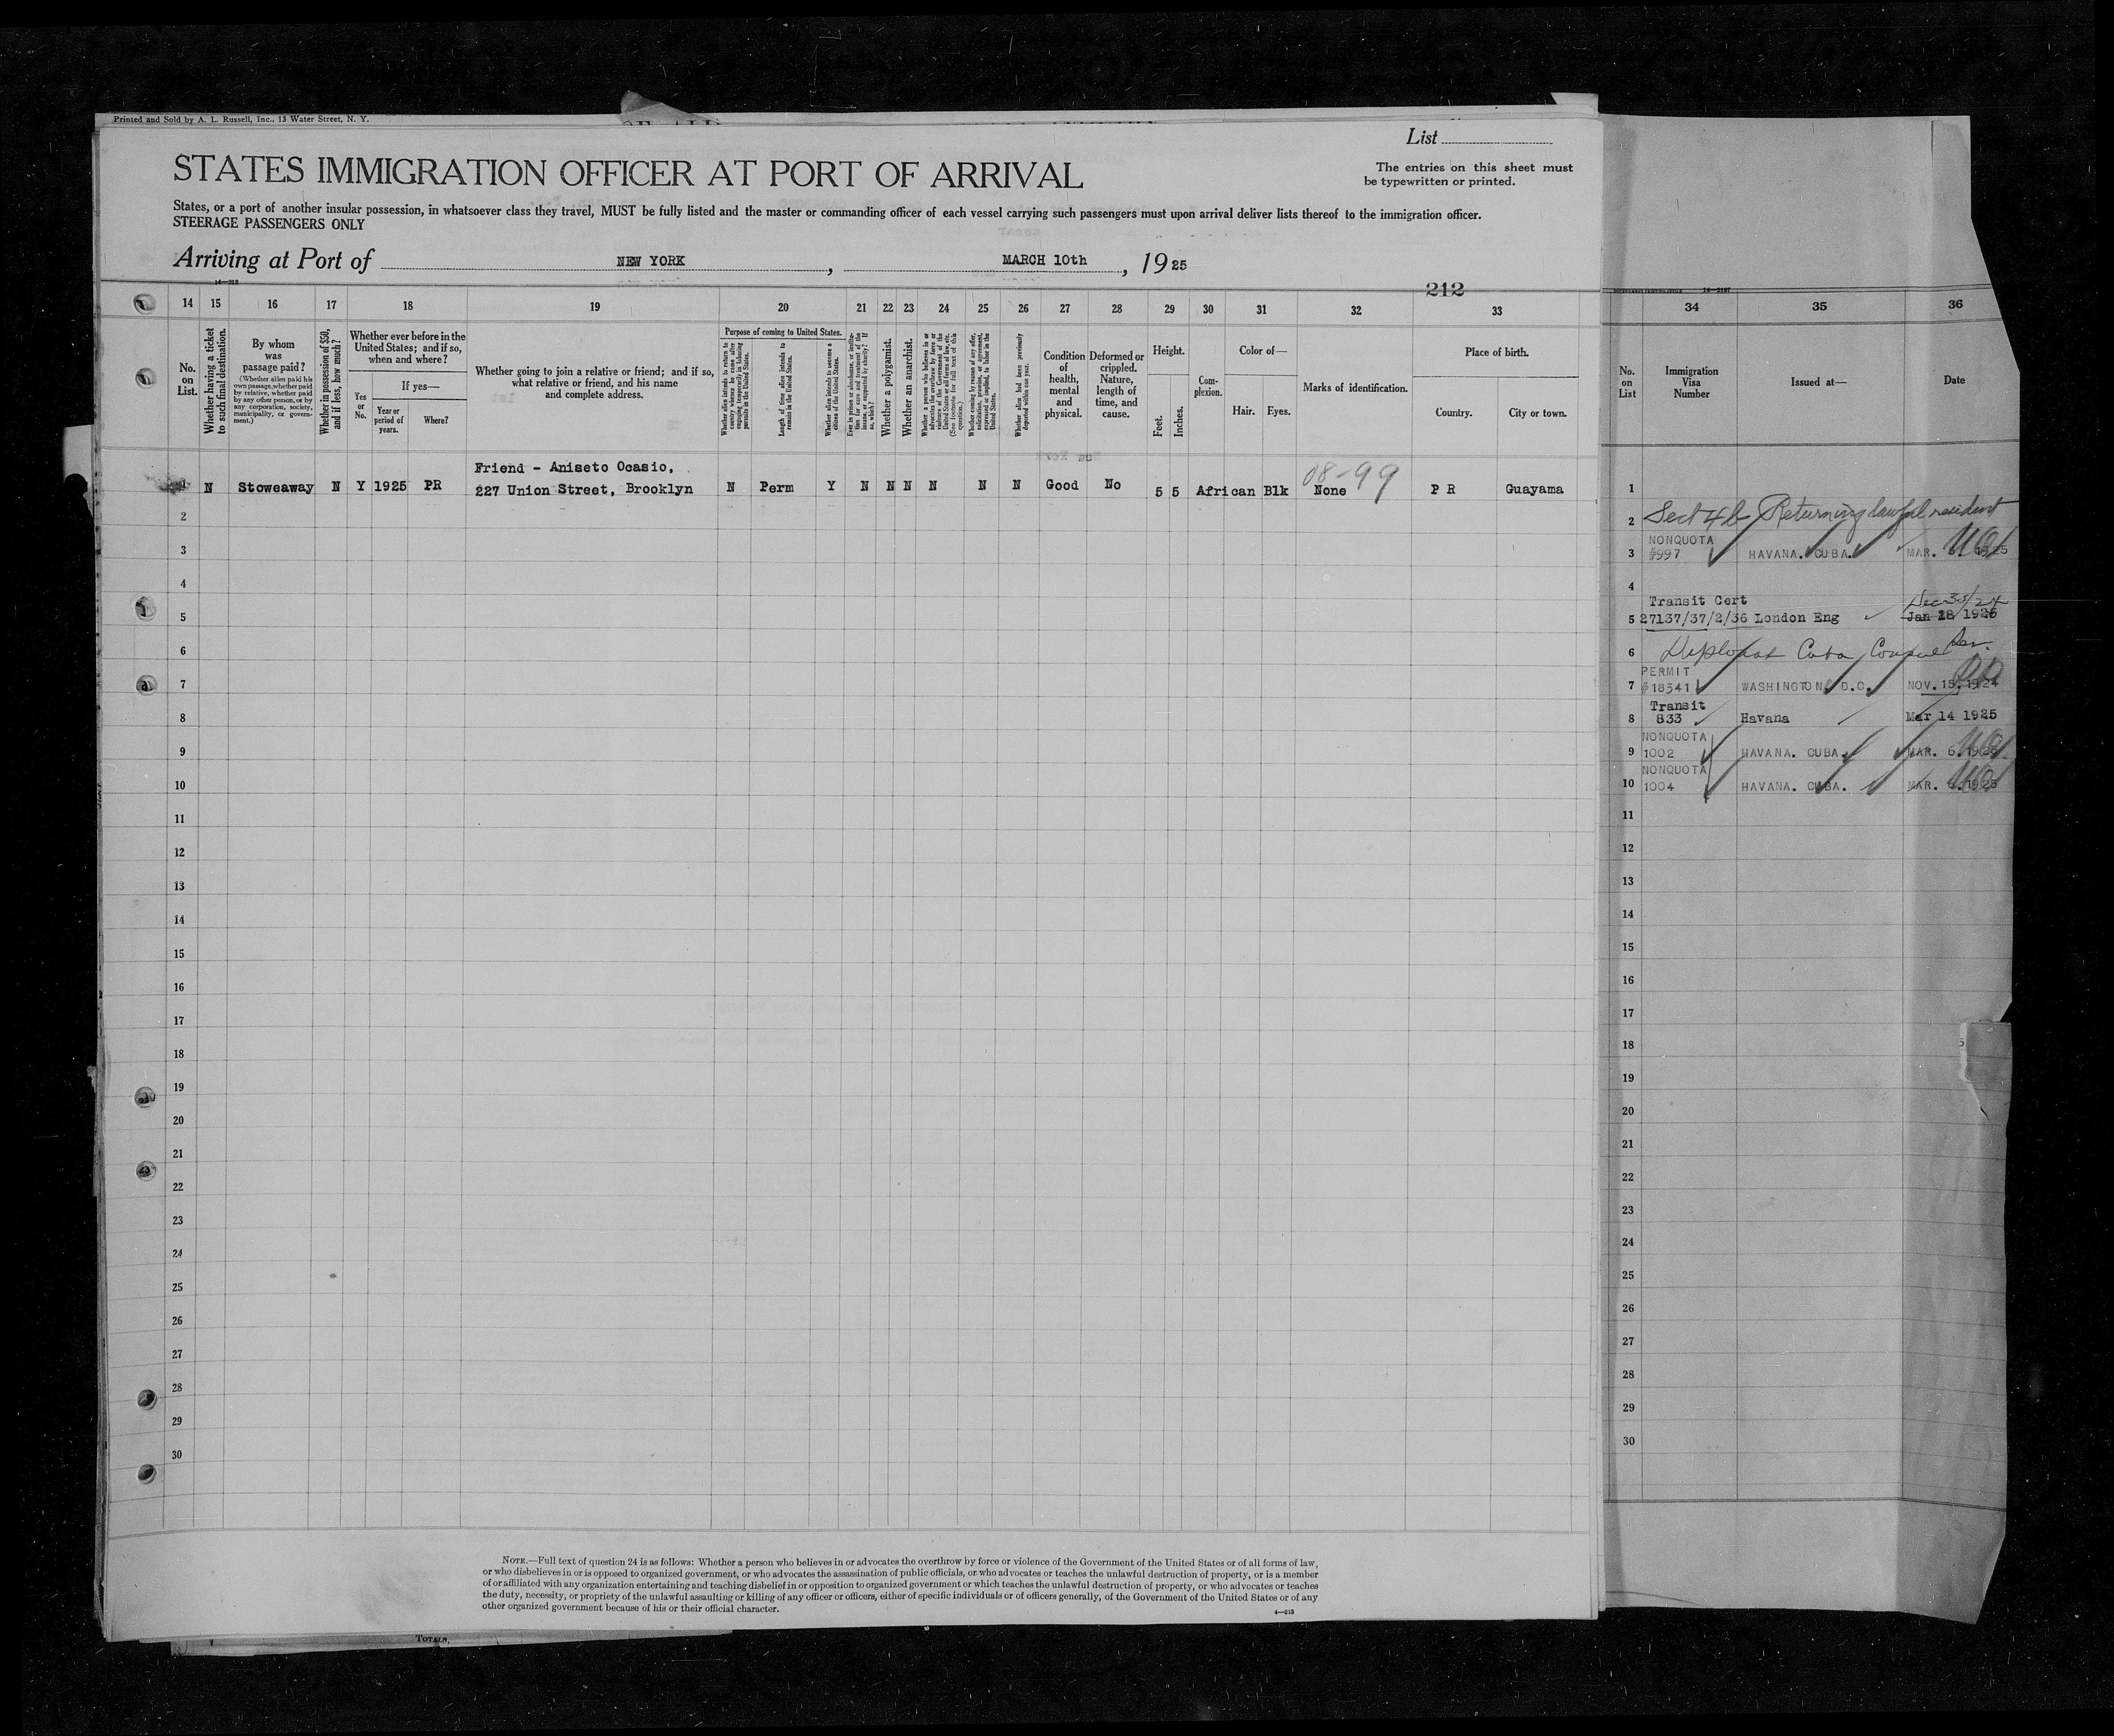 Printed and Sold by A. L. Russell, Inc., 13 Water Street, N. Y.
List
STATES IMMIGRATION OFFICER AT PORT OF ARRIVAL
The entries on this sheet must
be typewritten or printed.
States, or a port of another insular possession, in whatsoever class they travel, MUST be fully listed and the master or commanding officer of each vessel carrying such passengers must upon arrival deliver lists thereof to the immigration officer.
STEERAGE PASSENGERS ONLY
Arriving at Port of NEW YORK, MARCH 10th, 1925
212
14 15 16 17 18 19 20 21 22 23 24 25 26 27 28 29 30 31 32 33
No. on List.
Whether having a ticket to such final destination.
By whom was passage paid?
(Whether alien paid his own passage, whether paid by relative, whether paid by any other person, or by any corporation, society, municipality, or government.)
Whether in possession of $50, and if less, how much?
Whether ever before in the United States; and if so, when and where?
Yes or No.
If yes—
Year or period of years.
Where?
Whether going to join a relative or friend; and if so, what relative or friend, and his name and complete address.
Purpose of coming to United States.
Whether alien intends to return to country whence he came after engaging temporarily in laboring pursuits in the United States.
Length of time alien intends to remain in the United States.
Whether alien intends to become a citizen of the United States.
Ever in prison or almshouse, or institution for care and treatment of the insane, or supported by charity? If so, which?
Whether a polygamist.
Whether an anarchist.
Whether a person who believes in or advocates the overthrow by force or violence of the Government of the United States or all forms of law, etc. (See footnote for full text of this question.)
Whether coming by reason of any offer, solicitation, promise, or agreement, expressed or implied, to labor in the United States.
Whether alien had been previously deported within one year.
Condition of health, mental and physical.
Deformed or crippled. Nature, length of time, and cause.
Height.
Feet.
Inches.
Complexion.
Color of—
Hair.
Eyes.
Marks of identification.
Place of birth.
Country.
City or town.
08-99
Friend - Aniseto Ocasio,
1 N Stoweaway N Y 1925 PR 227 Union Street, Brooklyn N Perm Y N N N N N N Good No 5 5 African Blk None P R Guayama
2
3
4
5
6
7
8
9
10
11
12
13
14
15
16
17
18
19
20
21
22
23
24
25
26
27
28
29
30
NOTE.—Full text of question 24 is as follows: Whether a person who believes in or advocates the overthrow by force or violence of the Government of the United States or of all forms of law,
or who disbelieves in or is opposed to organized government, or who advocates the assassination of public officials, or who advocates or teaches the unlawful destruction of property, or is a member
of or affiliated with any organization entertaining and teaching disbelief in or opposition to organized government or which teaches the unlawful destruction of property, or who advocates or teaches
the duty, necessity, or propriety of the unlawful assaulting or killing of any officer or officers, either of specific individuals or of officers generally, of the Government of the United States or of any
other organized government because of his or their official character.
TOTALS.
34 35 36
No. on List
Immigration Visa Number
Issued at—
Date
1
2 Sect 4b Returning lawful resident
NONQUOTA
3 #997 HAVANA. CUBA. MAR. 1925
4
Transit Cert Dec 30/24
5 27137/37/2/36 London Eng Jan 28 1925
6 Diplomat Cuba Consul
PERMIT
7 #18341 WASHINGTON, D.C. NOV. 15. 1924
Transit
8 833 Havana Mar 14 1925
NONQUOTA
9 1002 HAVANA. CUBA. MAR. 6. 1925
NONQUOTA
10 1004 HAVANA. CUBA. MAR. 1925
11
12
13
14
15
16
17
18
19
20
21
22
23
24
25
26
27
28
29
30